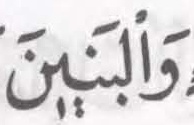 وَٱلْبَنِينَ